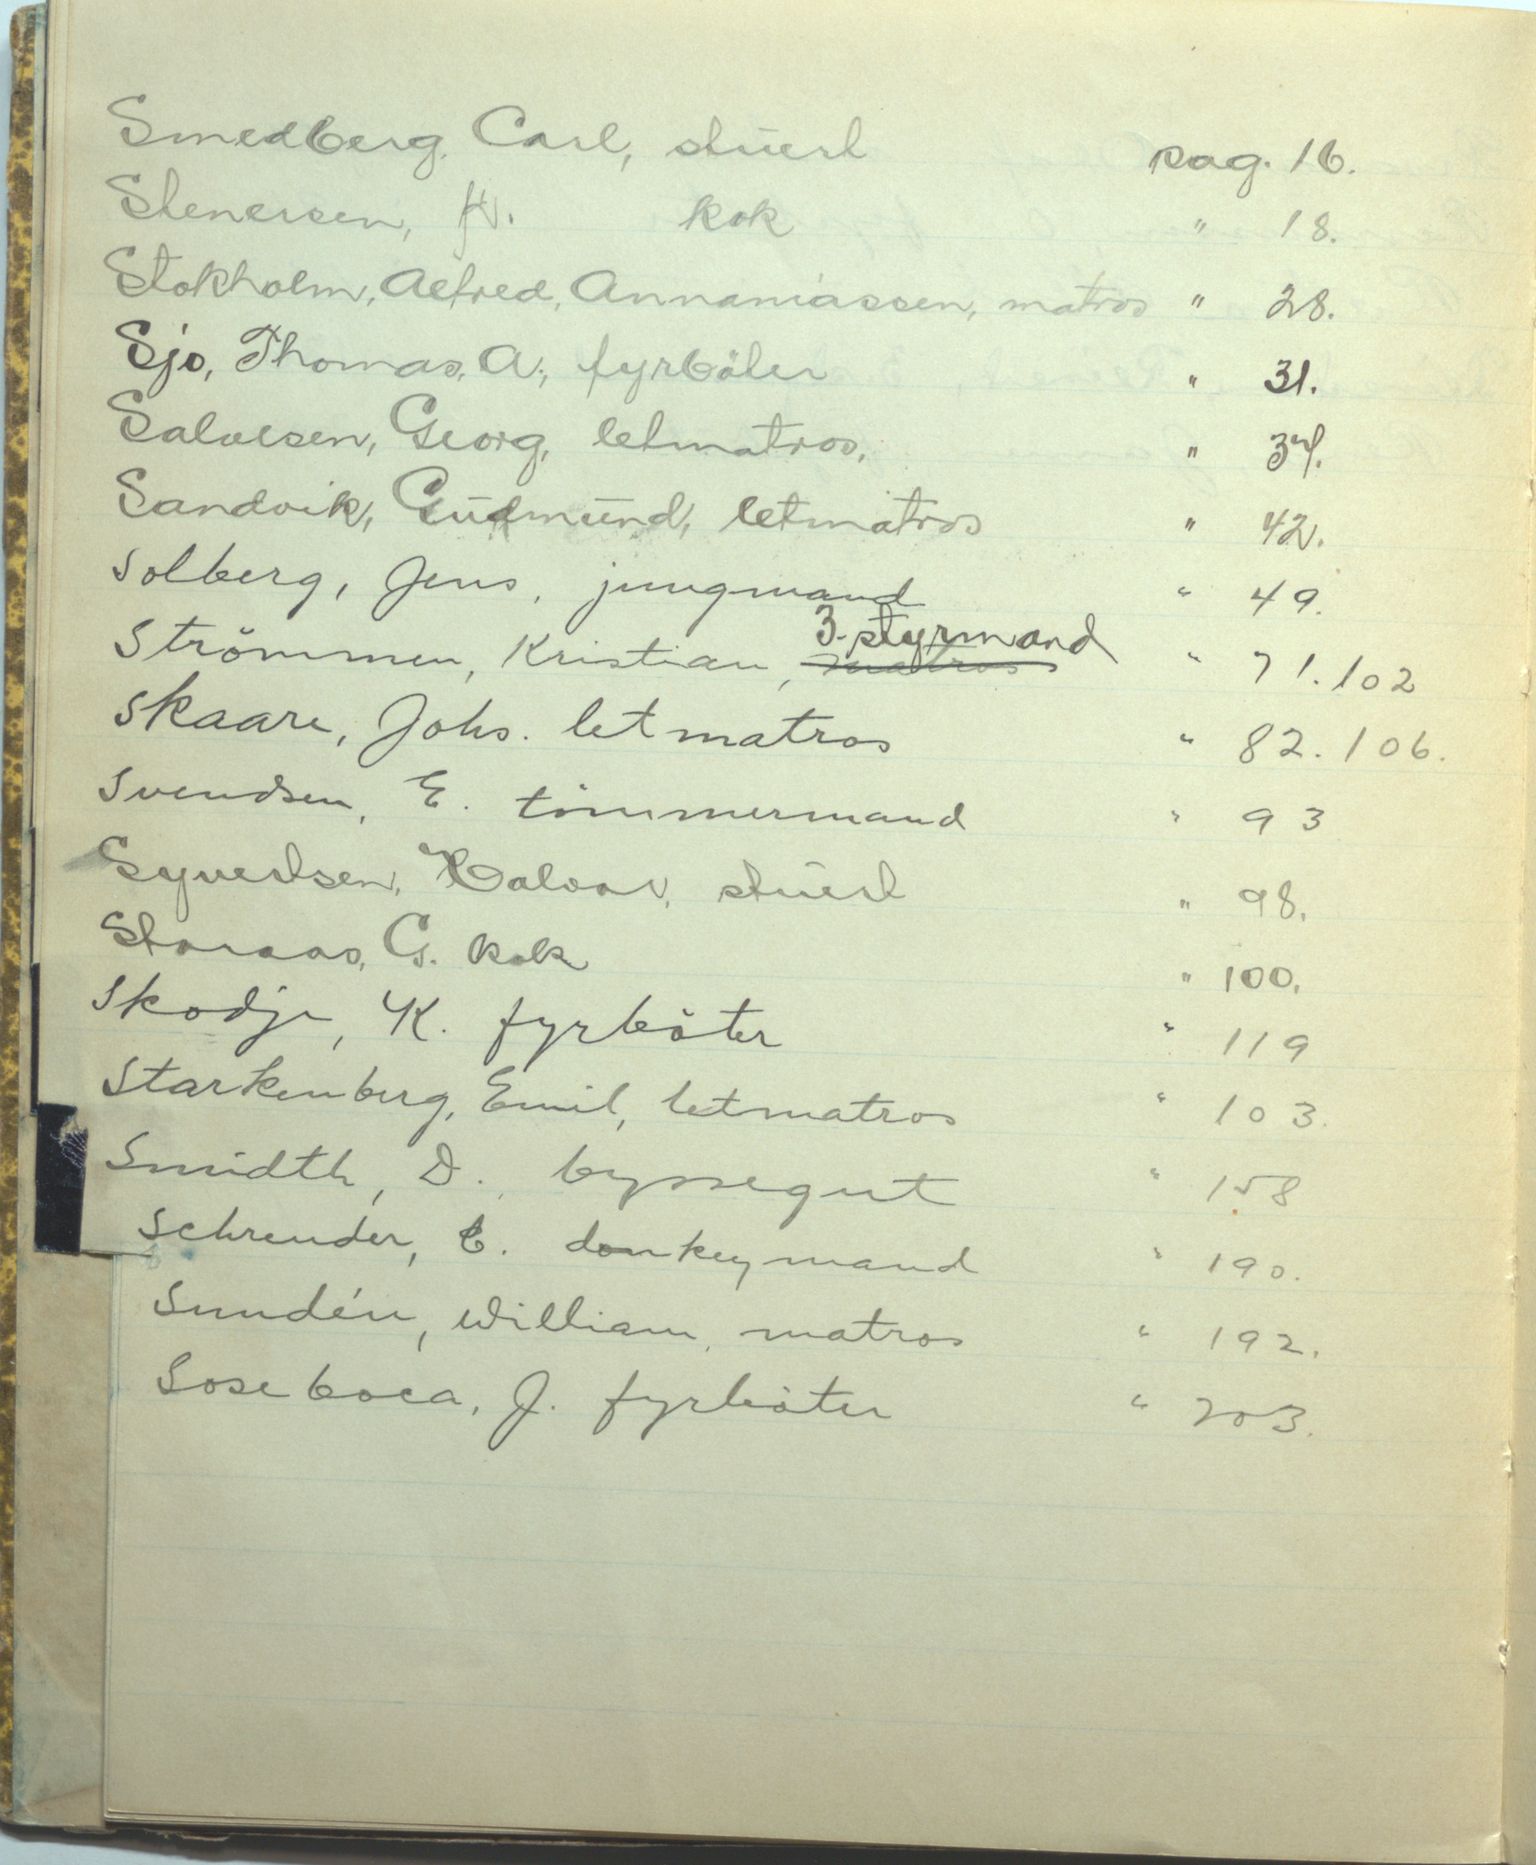 Smedberg, Carl, stuert pag. 16.
Stenersen, kok " 18.
Stokholm, Alfred, Annaniassen, matros " 28.
Sjo, Thomas, A., fyrböter " 31.
Salvesen, Georg, letmatros, " 34.
Sandvik, Gudmund, letmatros " 42.
Solberg, Jens, jungmand " 49.
3. styrmand
Strömmen, Kristian, matros " 71. 102
Skaare, Johs. letmatros " 82. 106.
Svendsen, E. tömmermand " 93
Syvertsen, Halvor, stuert " 98.
Storaas, G. kok " 100.
Skodje, K. fyrböter " 119
Starkenberg, Emil, letmatros " 103.
Smidth, D., byssegut " 158
Schreuder, C. donkeymand " 190.
Sundén, William, matros " 192.
Soseboca, J. fyrböter " 203.